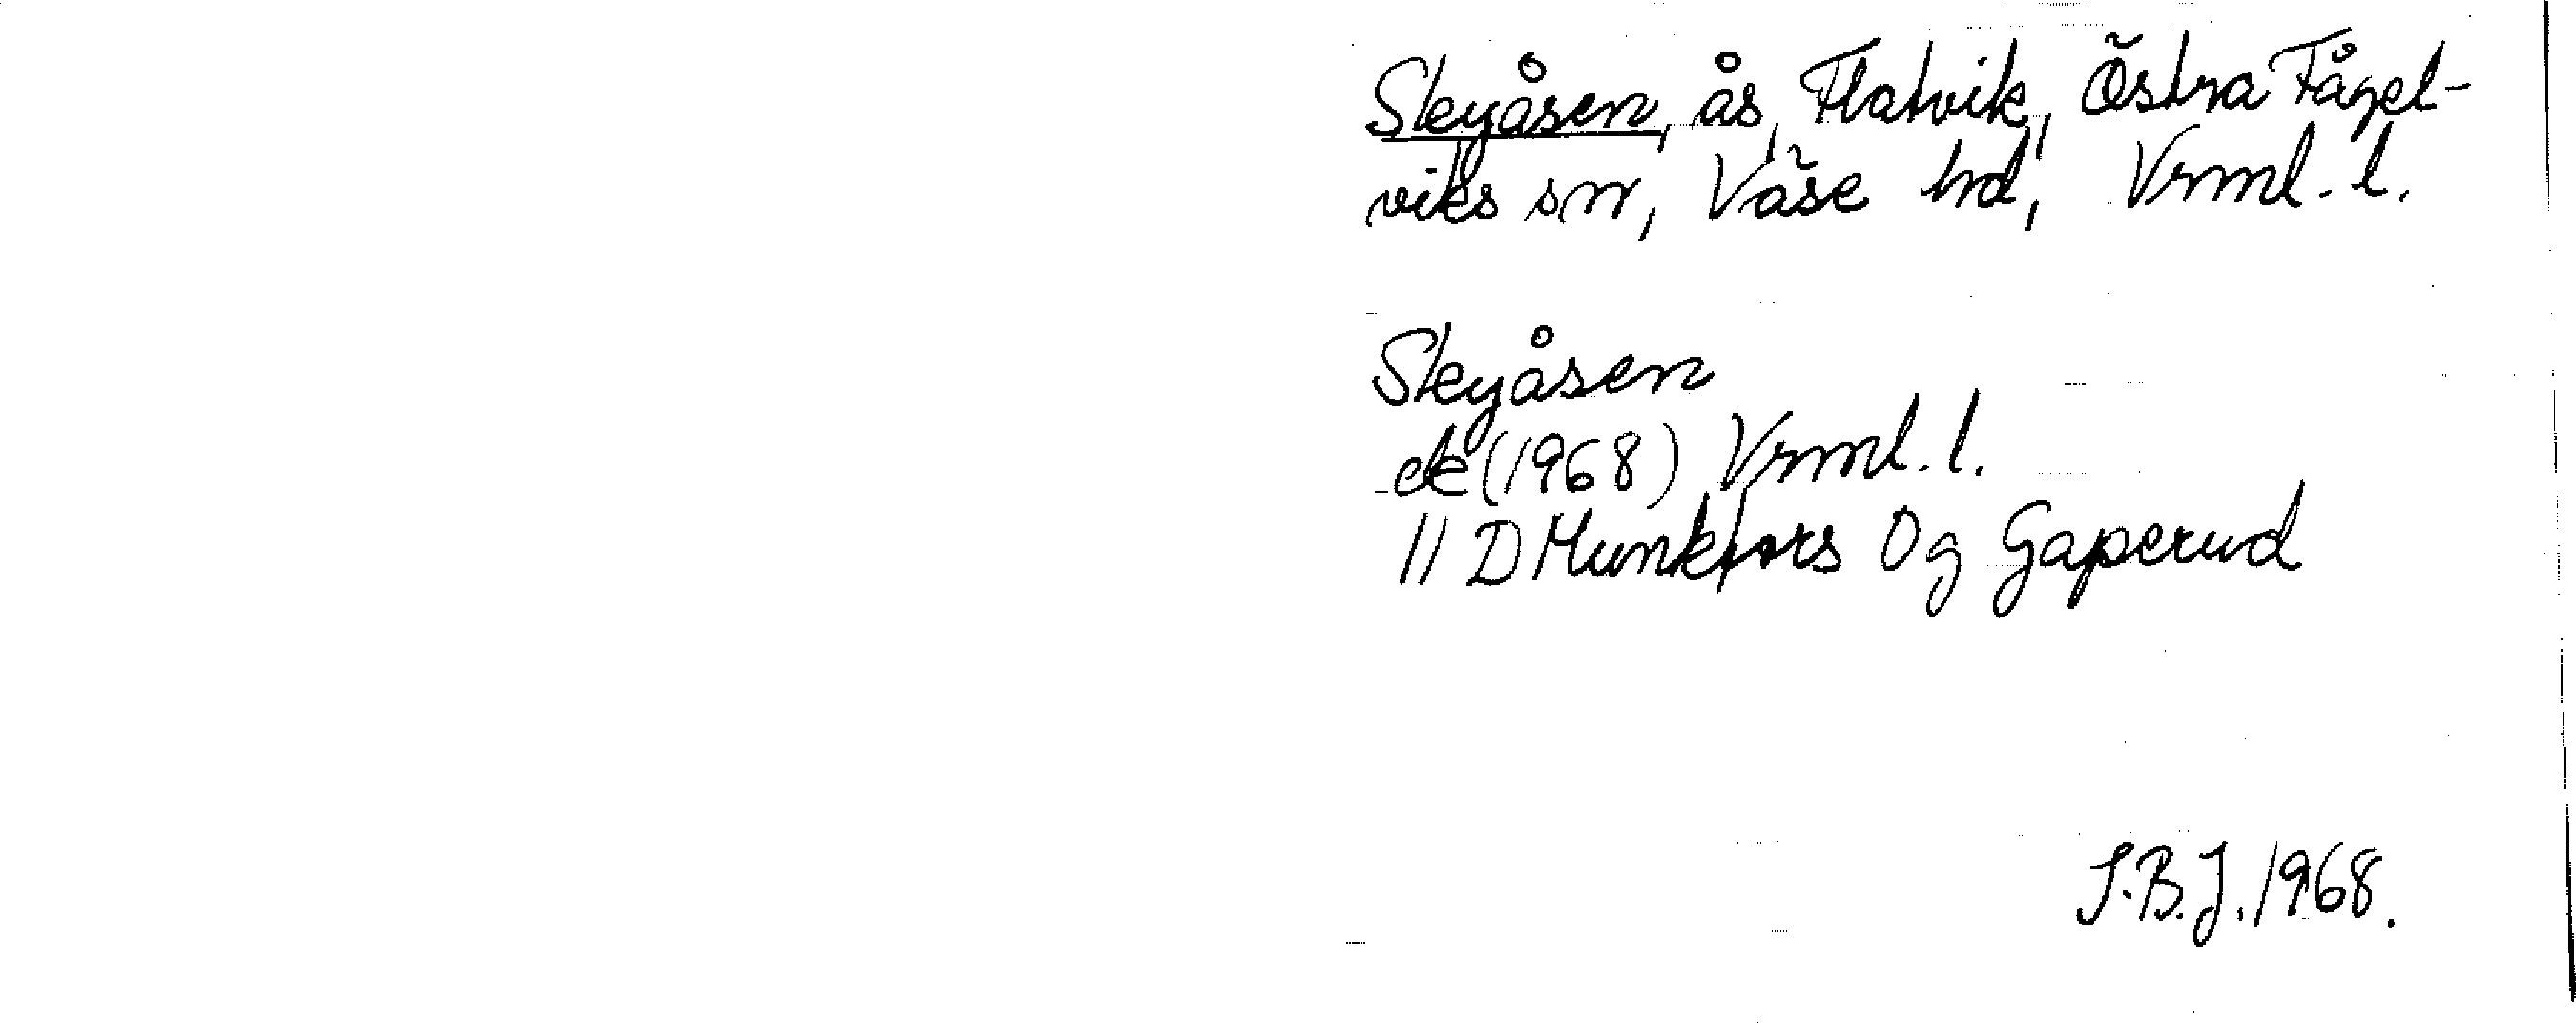 Sleyåsen, ås, Flatvik, Östra Fågel-
viks sn, Väse hd, Vrml. l.
Sleyåsen
ek (1968) Vrml. l.
11 D Munkfors 0g Gaperud
S.B.J. 1968.